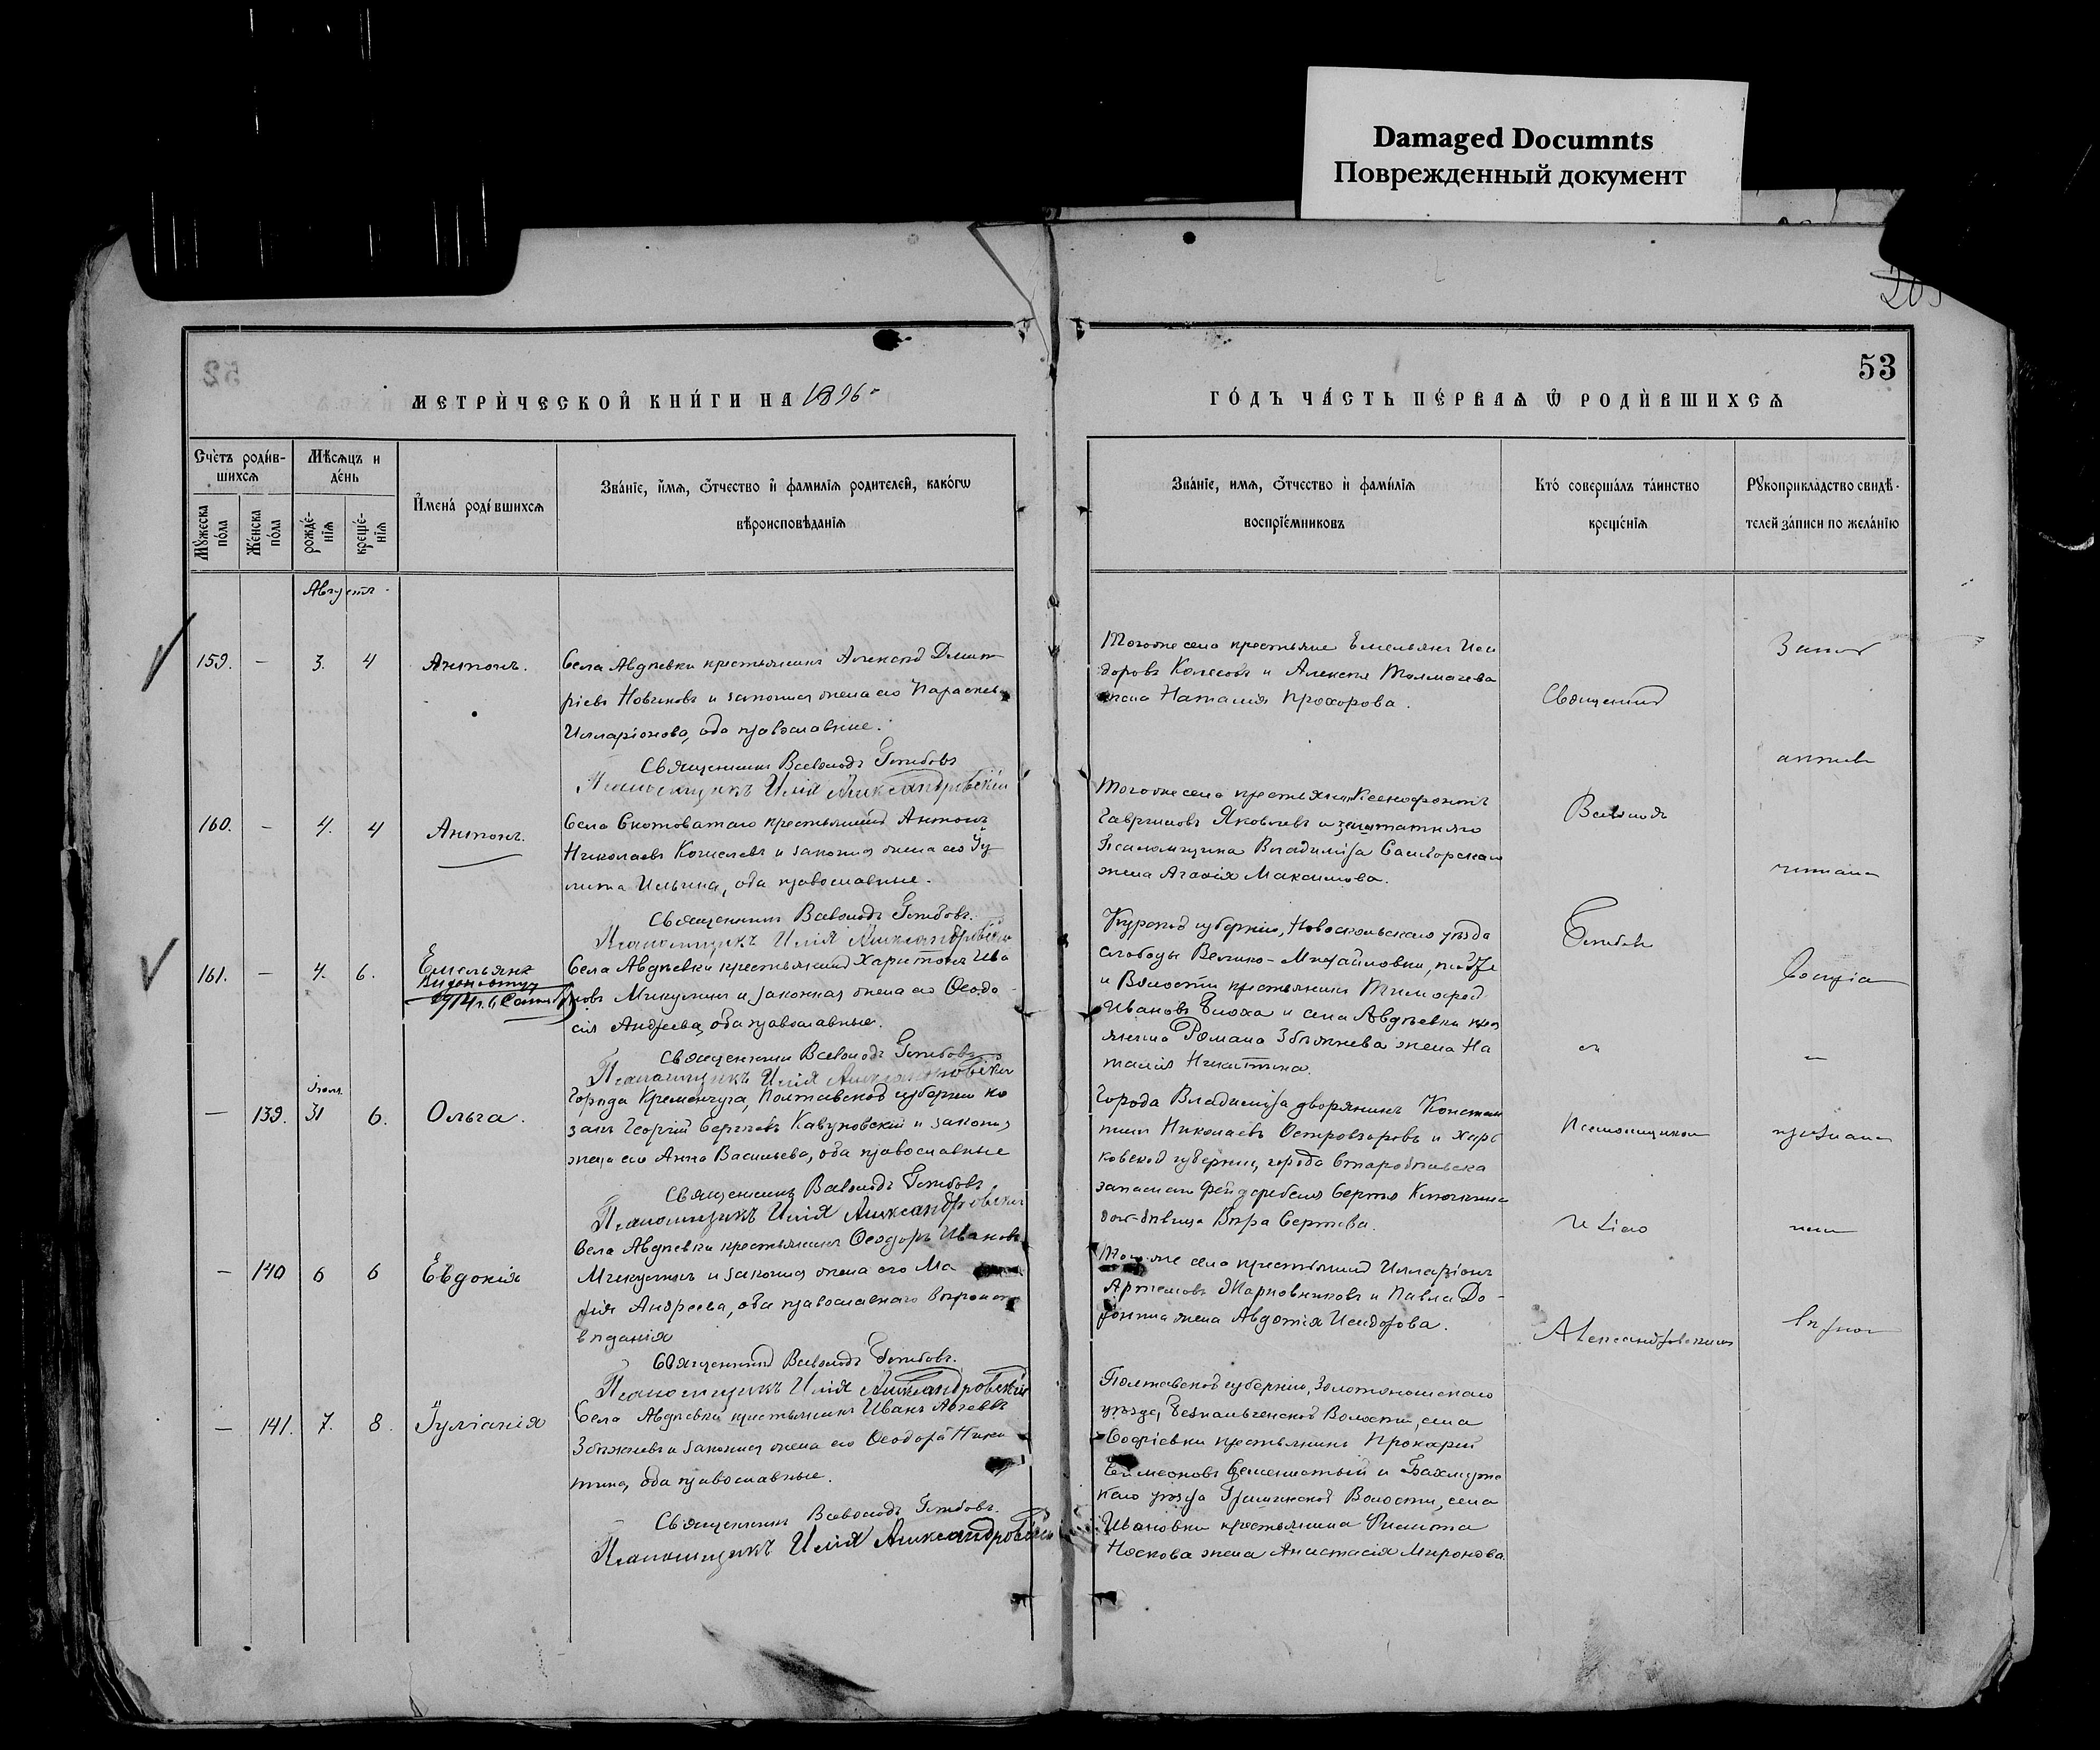 Damaged Documnts
Поврежденный документ
53
МЕТРИ́ЧЕСКОЙ КНИ́ГИ НА 1896 г
ГО́ДЪ ЧА́СТЬ ПЕ́РВАѦ Ѿ РОДИ́ВШИХСѦ
Счетъ роди́в-
шихсѧ
Мꙋжеска по́ла
Же́нска по́ла
Мѣсѧцъ и
де́нь
рожде́-
нїѧ
креще́-
нїѧ
И́мена́ роди́вшихсѧ
Зва́нїе, и́мѧ, о́тчество и фамилїѧ родителей, како́гѡ
вѣроисповѣданїѧ
Зва́нїе, имѧ, о́тчество и фами́лїѧ
воспрїе́мниковъ
Кто́ соверша́лъ та́инство
креще́нїѧ
Рꙋкоприкла́дство свидѣ-
телей за́писи по жела́нїю
Августъ
159. — 3. 4 Антонъ.
Села Авдѣевки крестьянинъ Дмит
ріевъ Новиковъ и законная жена его Параскева
Илларіонова, оба православные.
Священникъ Всеволодъ
Псаломщикъ Илія Александровскій
Того же села крестьяне Емельянъ Иси
доровъ Колесовъ и Алексѣя Толмачева
жена Наталія Прохорова.
160. — 4. 4 Антонъ.
Села Скотоватаго крестьянинъ Антонъ
Николаевъ Кошелевъ и законная жена его Іу
лита Ильина, оба православные.
Священникъ Всеволодъ
Псаломщикъ Илія Александровскій
Того же села крестьянинъ Ксенофонтъ
Гавриловъ Яковлевъ и заштатнаго
Псаломщика Владиміра
жена Агафія Максимова.
161. — 4. 6. Емельянъ
Села Авдѣевки крестьянинъ Харитонъ Ива
новъ Микулинъ и законная жена его Ѳеодо
сія Андреева, оба православные.
Священникъ Всеволодъ
Псаломщикъ Илія Александровскій
Курской губерніи, Новооскольскаго уѣзда
слободы Велико-Михайловки, той же
и Волости крестьянинъ Тимофей
Ивановъ Блоха и села Авдѣевки крес
янина Романа Збѣжнева жена На
талія Никитина.
Іюля
— 139. 31 6. Ольга.
Города Кременчуга, Полтавской губерніи ко
закъ Георгій Сергѣевъ и законная
жена его Анна Васильева, оба православные
Священникъ Всеволодъ
Псаломщикъ Илія Александровскій
Города Владиміра дворянинъ Констан
тинъ Николаевъ Островзоровъ и Харь
ковской губерніи, города Старобѣльска
запаснаго фельдфебеля Сергѣя
дочь-дѣвица Вѣра Сергѣева.
— 140 6 6 Евдокія
Села Авдѣевки крестьянинъ Ѳеодоръ Ивановъ
Микулинъ и законная жена его Ма
рія Андреева, оба православнаго вѣроиспо
вѣданія
Священникъ Всеволодъ
Псаломщикъ Илія Александровскій
Того же села крестьянинъ Илларіонъ
Артемовъ Жарновниковъ и Павла До
ронина жена Авдотія Исидорова.
— 141. 7. 8. Іуліанія
Села Авдѣевки крестьянинъ Иванъ
Збѣжневъ и законная жена его Ѳеодора Ники
тина, оба православные.
Священникъ Всеволодъ
Псаломщикъ Илія Александровскій
Полтавской губерніи, Золотоношскаго
уѣзда, Безпальченской Волости, села
Софіевки крестьянинъ Прокофій
Симеоновъ и Бахмутс
каго уѣзда Гришинской Волости, села
Ивановки крестьянина Филиппа
Носкова жена Анастасія Миронова.
Священникъ
Всеволодъ
и
Псаломщикъ
Иліею
Александровскимъ